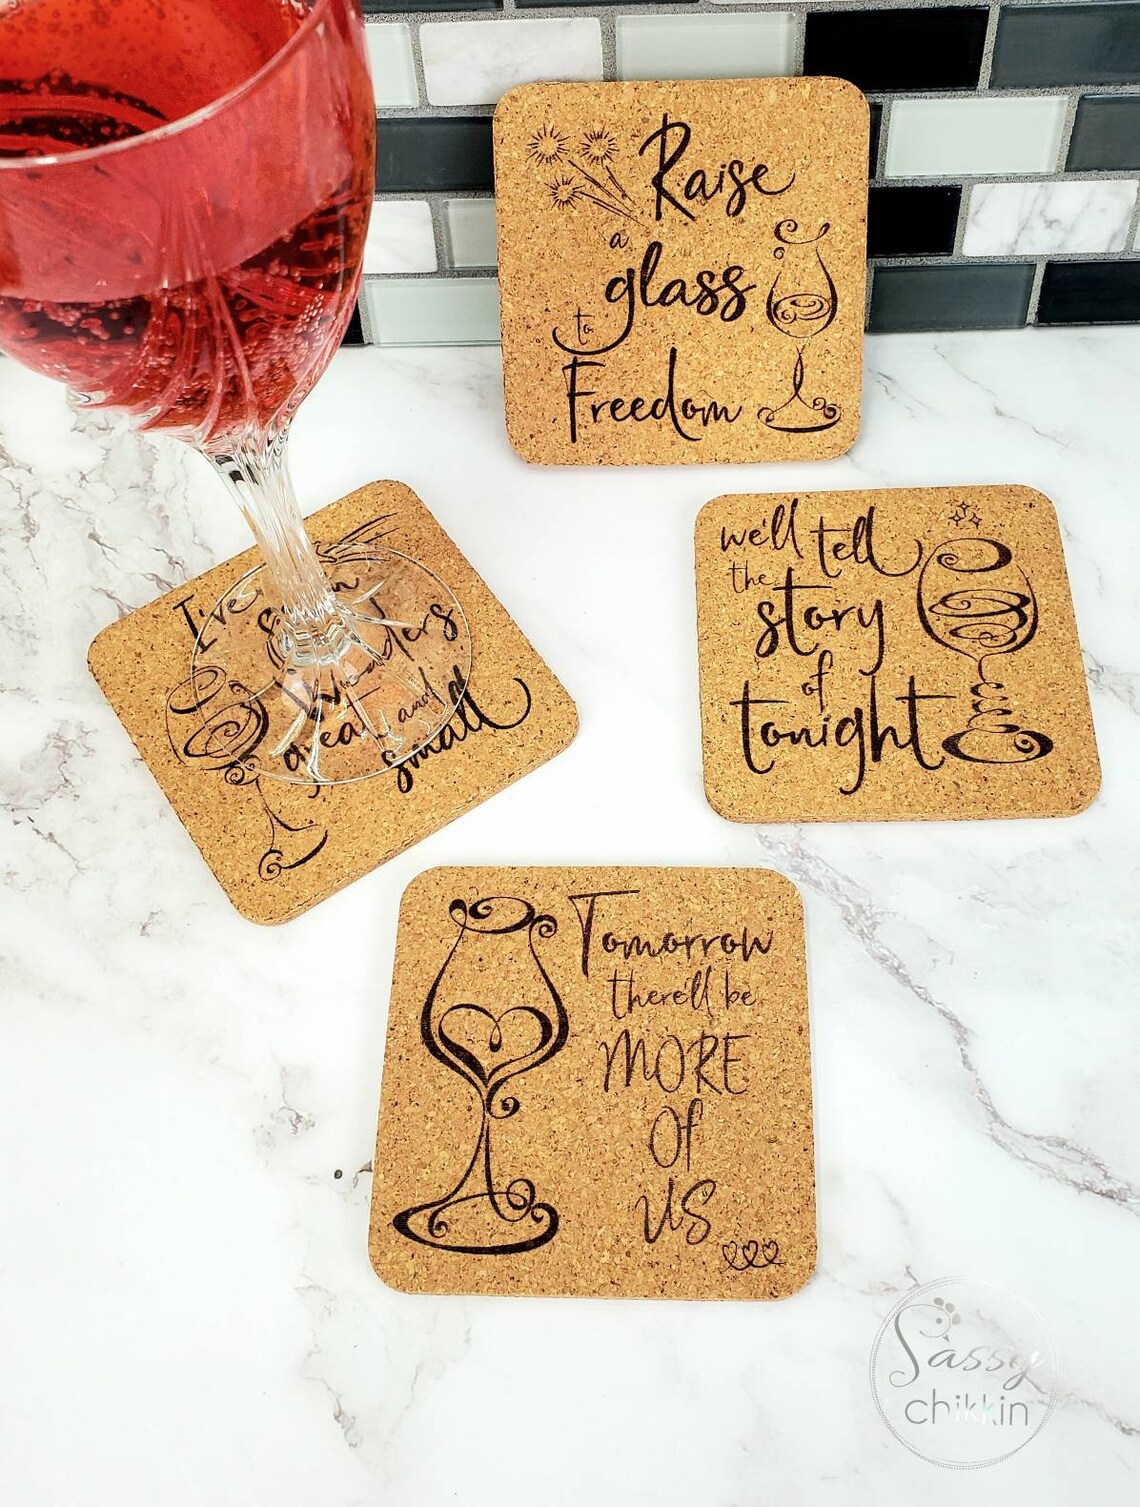 Raise
a
glass
to
Freedom
we'll tell
the
story
of
tonight
I've
seen
Wonders
great and
small
Tomorrow
there'll be
MORE
Of
US
Sassy
chikkin